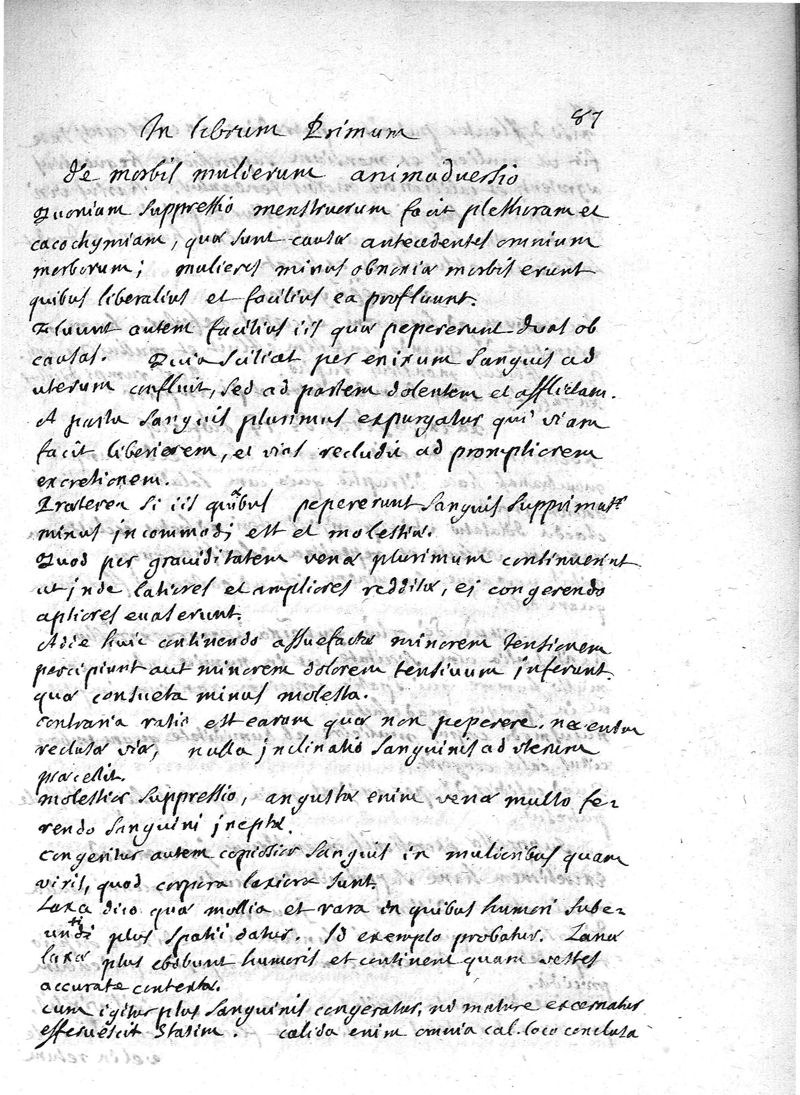 87
In librum Primum
de morbis mulierum animadversio
Quoniam suppressio menstruorum facit plethoram et
cacochymiam, quæ sunt causæ antecedentes omnium
morborum; mulieres minus obnoxiæ morbis erunt
quibus liberalius et facilius ea profluunt.
Fluunt autem facilius iis quæ pepererunt duas ob
causas. Quia scilicet per enixum sanguis ad
uterum confluit, sed ad partem dolentem et afflictam.
A partu sanguis plurimus expurgatur qui viam
facit liberiorem, et vias recludit ad promptiorem
excretionem.
Præterea si iis quibus pepererunt sanguis supprimatr
minus incommodi est et molestiæ.
Quod per graviditatem venæ plurimum continuerint
ut inde latiores et ampliores redditæ, ei congerendo
aptiores evaserunt.
Adde huic continendo assuefactæ minorem tensionem
percipiunt aut minorem dolorem tensivum inferunt
quæ consueta minus molesta.
contraria ratio est earum quæ non peperere. nec enim
reclusæ viæ, nulla inclinatio sanguinis ad uterum
præcessit.
molestior suppressio, angustæ enim venæ multo fe-
rendo sanguini ineptæ.
Congeritur autem copiosior sanguis in mulieribus quam
viris, quod corpora laxiora sunt.
Laxa dico quæ mollia et rara in quibus humori sube-
unti plus spatii datur. Id exemplo probatur. Lana
laxa plus ebibunt humoris et continent quam vestes
accurate contextæ.
cum igitur plus sanguinis congeratur, ni mature excernatur
effervescit statim. calida enim omnia cal. loco conclusa